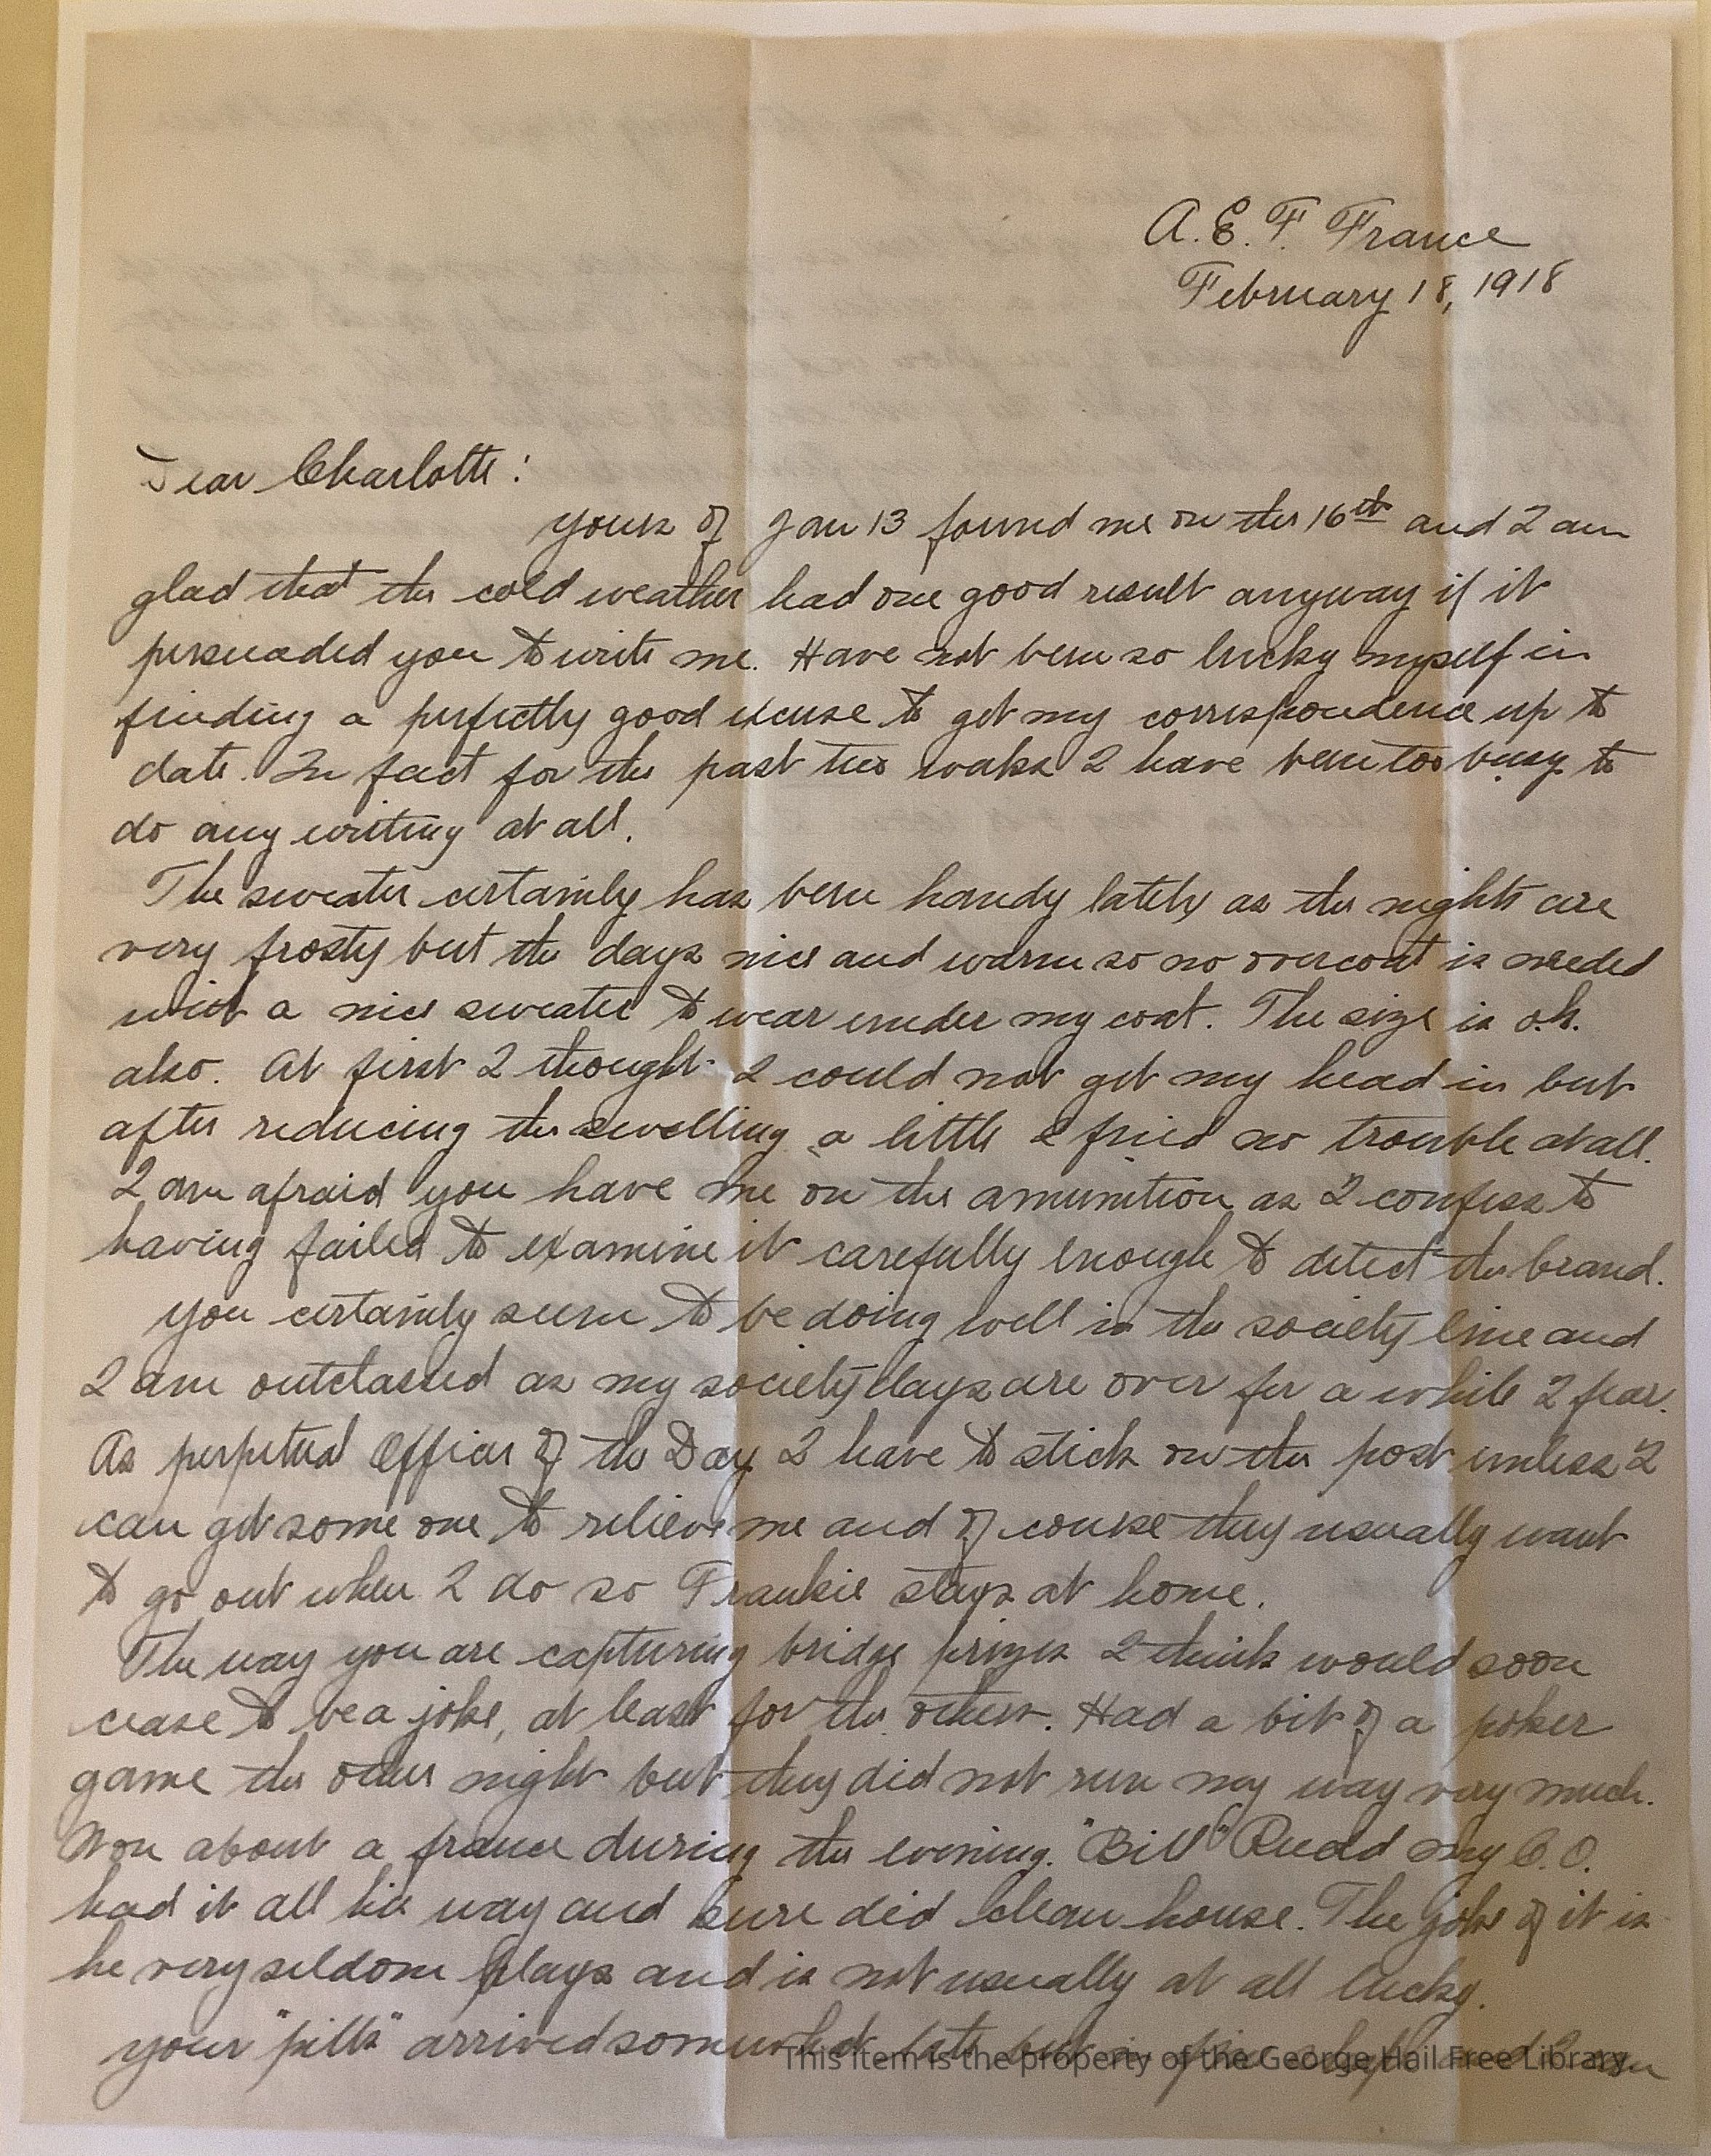 A. E. F. France
February 18, 1918
Dear Charlotte:
Yours of Jan 13 found me on the 16th and I am
glad that the cold weather had one good result anyway if it
persuaded you to write me. Have not been so lucky myself in
finding a perfectly good excuse to get my correspondence up to
date. In fact for the past two weeks I have been too busy to
do any writing at all.
The sweater certainly has been handy lately as the nights are
very frosty but the days nice and warm so no overcoat is needed
with a nice sweater to wear under my coat. The size is o.k.
also. At first I thought I could not get my head in but
after reducing the swelling a little I find no trouble at all.
I am afraid you have me on the amunition as I confess to
having failed to examine it carefully enough to detect the brand.
You certainly seem to be doing well in the society line and
I am outclassed as my society days are over for a while I fear.
As perpetual Officer of the Day I have to stick on the post unless I
can get some one to relieve me and of course they usually want
to go out when I do so Frankie stays at home.
The way you are capturing bridge prizes I think would soon
cease to be a joke, at least for the others. Had a bit of a poker
game the other night but they did not run my way very much.
Won about a franc during the evening. "Bill" my C.O.
had it all his way and sure did clean house. The joke of it is
he very seldom plays and is not usually at all lucky.
Your "pills" arrived somewhat late but in and I am
This item is the property of the George Hail Free Library.